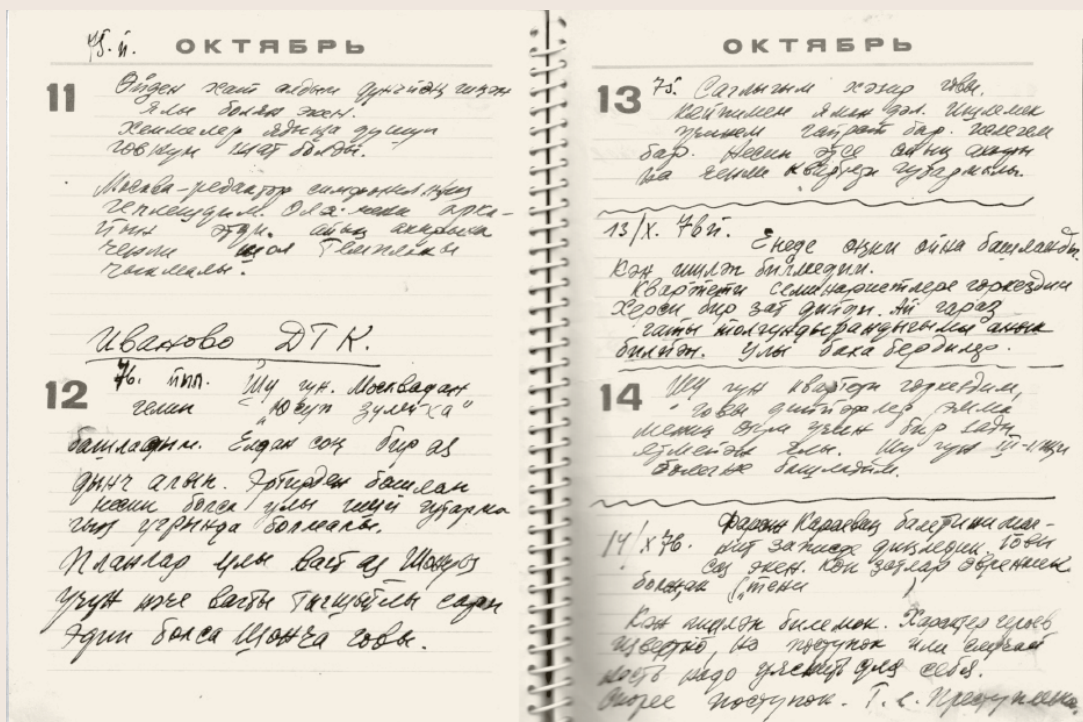 75. й. ОКТЯБРЬ
11
Өйден хат алдым дүнйәң гиңән
ялы болян экен.
Хеммелер ядыңа дүшүп
говкун шат болды.
Москва-редактор симфонияның
геплешдим. Ола хени арка-
йын этди. айың аккрыха
ченли шол
чыкмалы.
Иваново ДТК.
12
76. йыл. Шу гүн. Москвадан
гелип "Юсуп Зулейха"
башладым. Ендан соң бир аз
дынч алын. Эртирден башлап
несин болса улы ишй гутарма
гың угрында болмалы.
Планлар улы вагт аз Шоның
үчүн нәче вагты тыгшытлы сарп
эдип болса Шонча говы.
ОКТЯБРЬ
13
75. Саглыгым хәзир говы.
Кейпимем яман дәл. Ишлемек
үчинем гайрат бар. хөвесем
бар. Несин этсе айың ахыры
на ченли Квартети гутармалы.
13/X. 76й. Енеде өңки ойна башланды.
Кән ишләп билмедим.
Квартети семинаристлере гөркездим
Херси бир зат дийди. Ай гараз
гаты толгундырандыгымы анык
билйән. Улы бака бердилер.
14
Шу гүн квартети гөркездим,
говы диййәрлер эмма
мениң өзүм үчин бир зады
етмейән ялы. Шу гүн III-нҗи
бөлегне башладым.
14/X 76. Фараж Караевың балетини маг-
нит записде диңледик. Говы
соң экен. Көп затлар өвренмек
болжак ("тени )
Кән ишләп билемок. Характер героев
известно, но поступок или случай
ность надо уяснить для себя.
Скорее поступок. Т. е. Преступление.